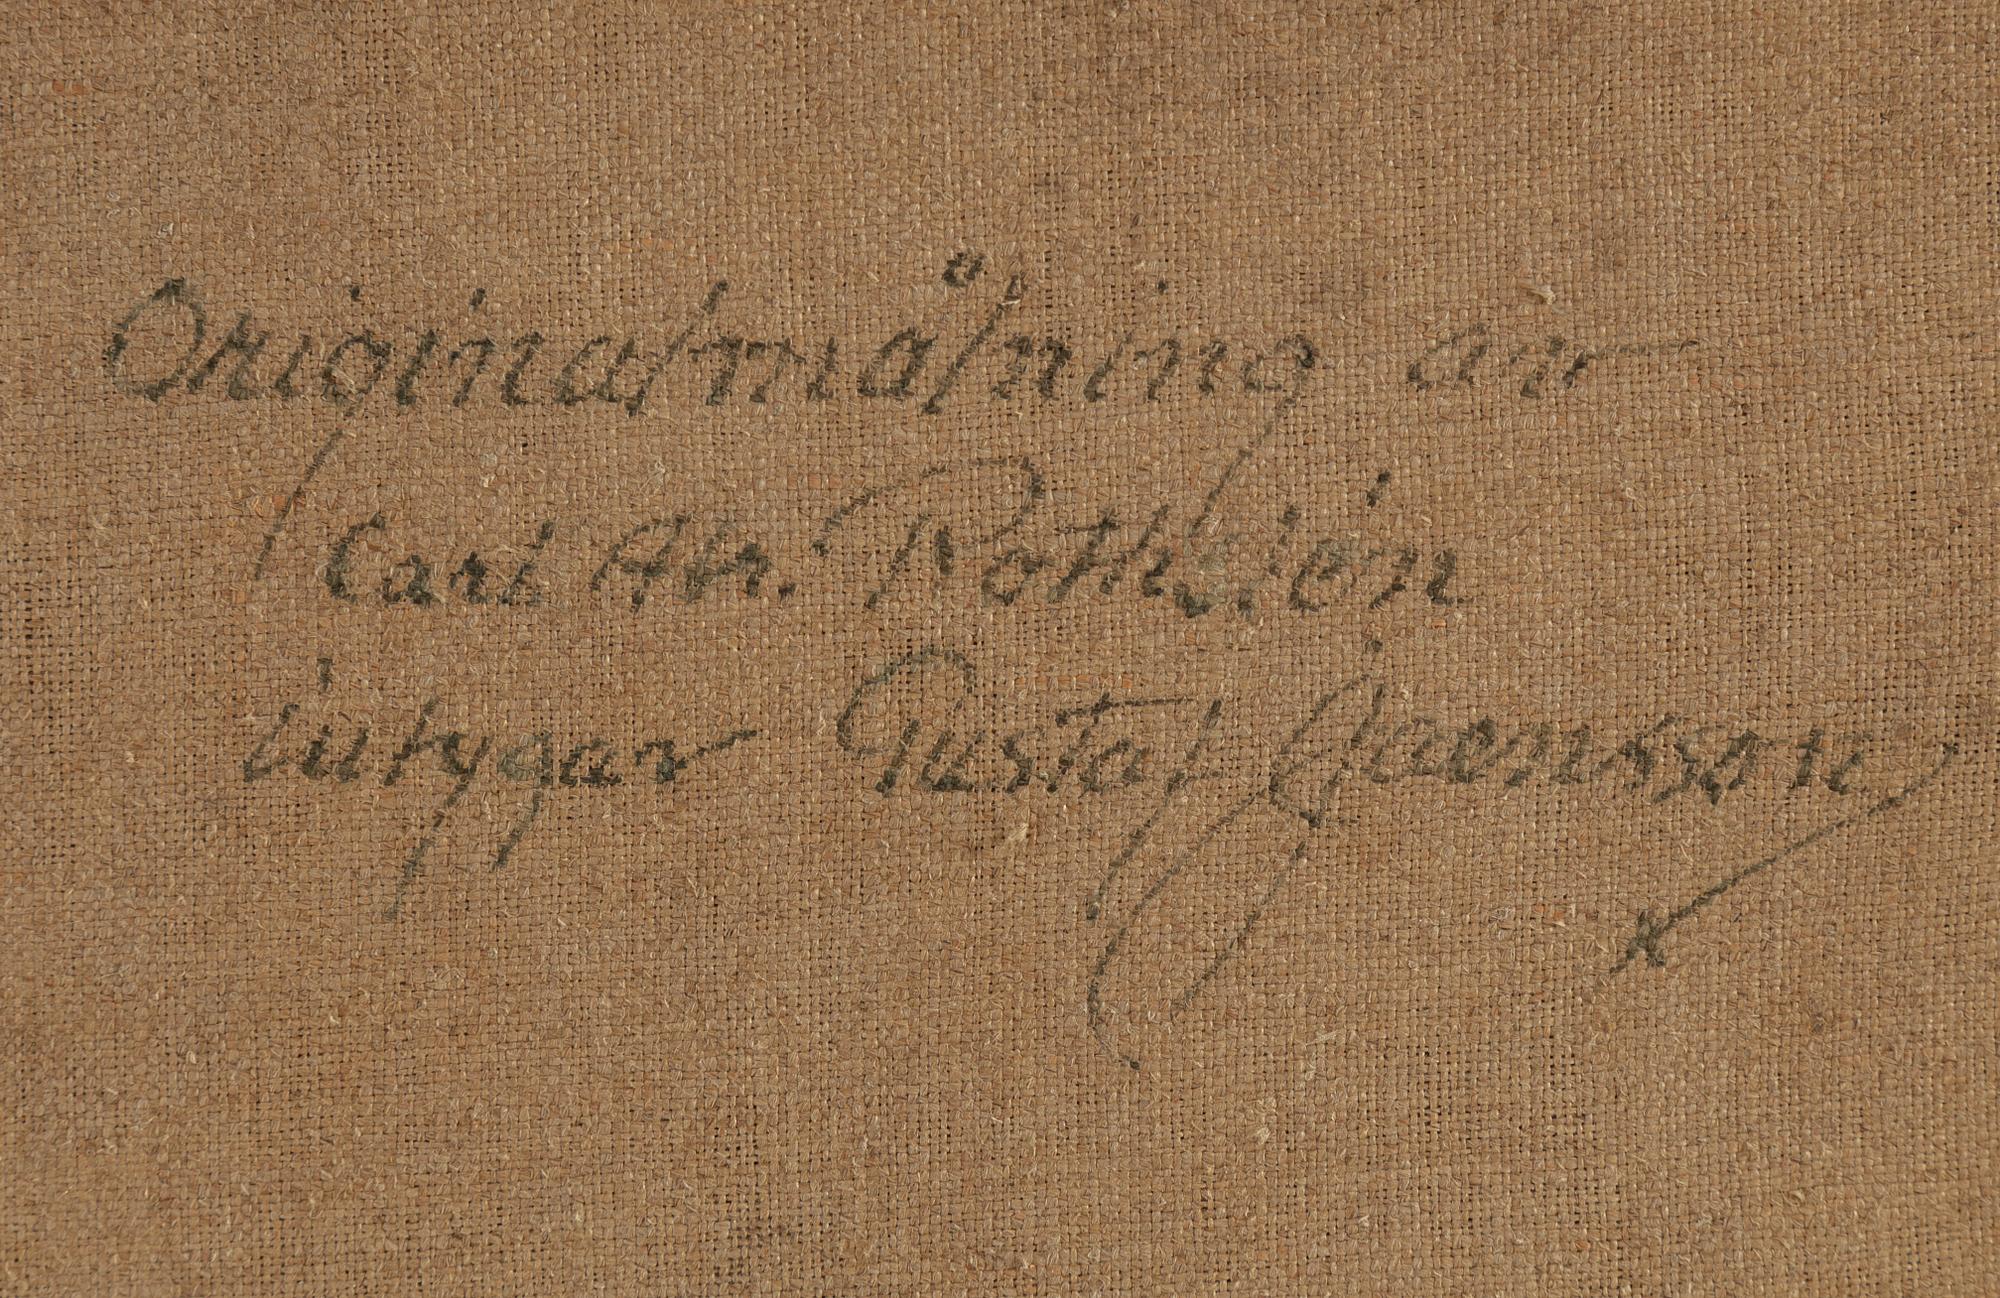 Originalmålning av
Carl Ab. Rothstén
intygar Gustaf Jaensson